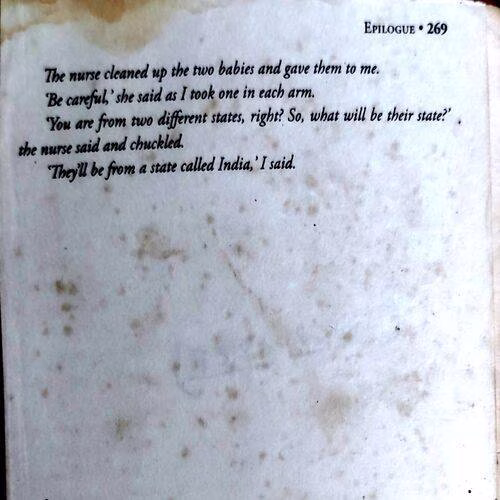 EPILOGUE • 269
The nurse cleaned up the two babies and gave them to me.
'Be careful,' she said as I took one in each arm.
'You are from two different states, right? So, what will be their state?'
the nurse said and chuckled.
'They'll be from a state called India,' I said.